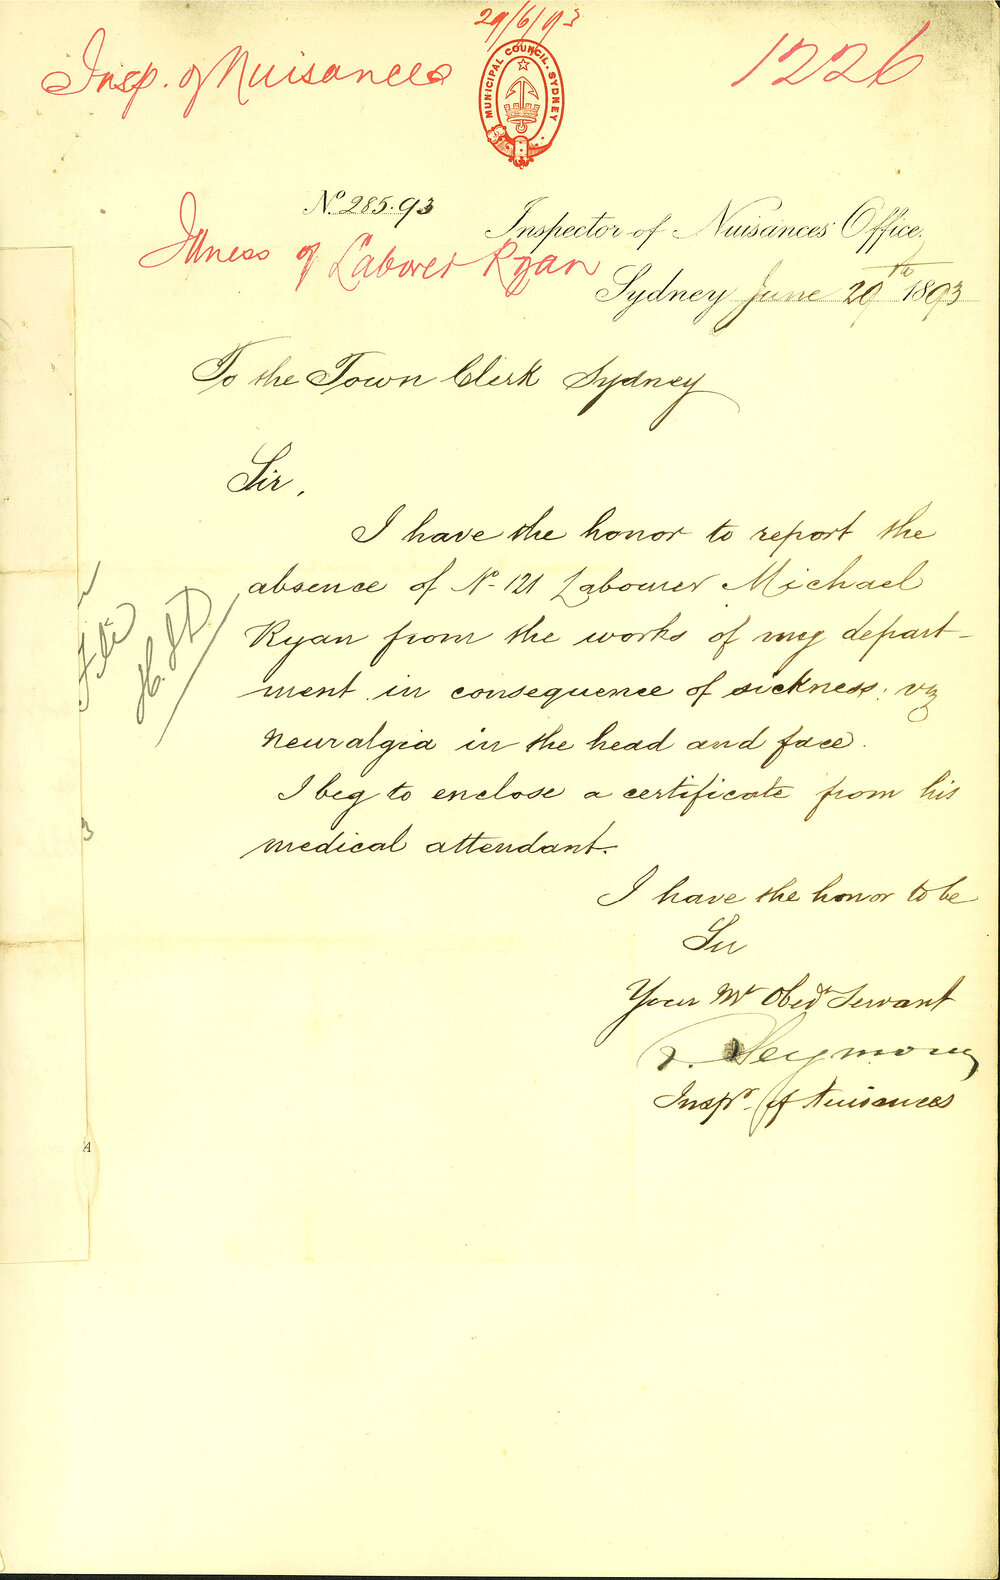 29/6/93
Insp. of Nuisances
1226
MUNICIPAL COUNCIL. SYDNEY
No. 285.93
Inspector of Nuisances Office,
Illness of Laborer Ryan
Sydney June 29th 1893
To the Town Clerk Sydney
Sir,
I have the honor to report the
absence of No- 121 Labourer Michael
Ryan from the works of my depart-
ment in consequence of sickness: viz
neuralgia in the head and face.
I beg to enclose a certificate from his
medical attendant.
I have the honor to be
Sir
Your Mt Obedt Servant
Seymour
Inspr. of Nuisances
File
3
A